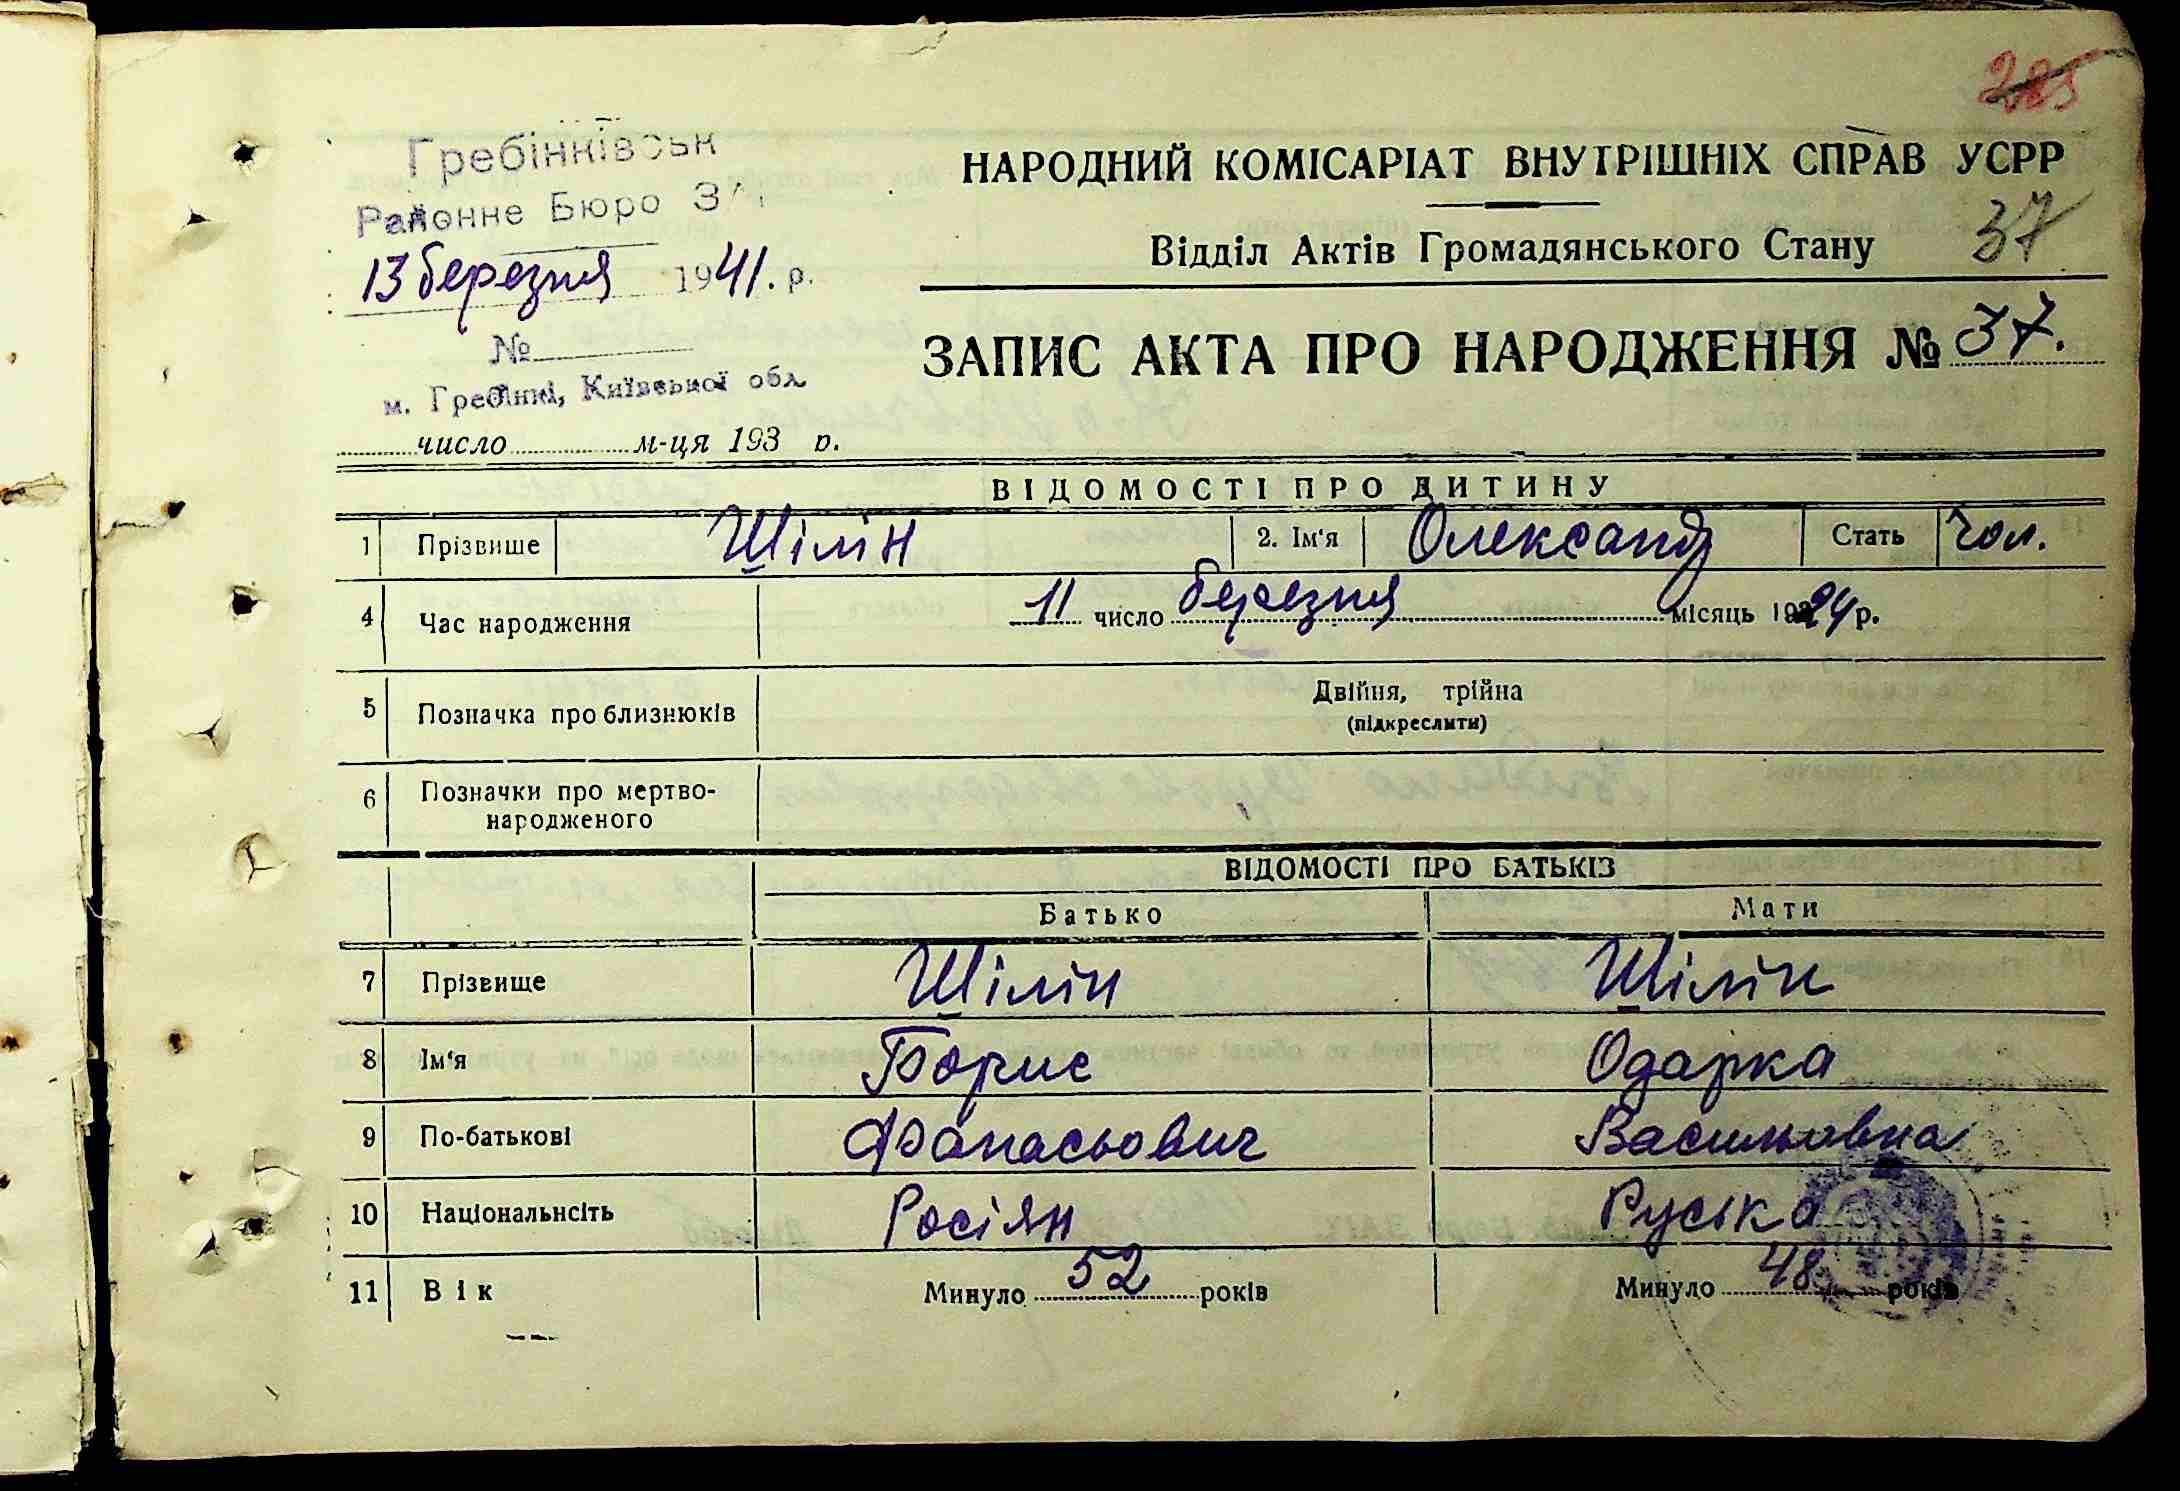 285
Гребінківськ
Районне Бюро З
13 березня 1941. р.
№
м. Гребінкі, Київської обл.
число м-ця 193 р.
НАРОДНИЙ КОМІСАРІАТ ВНУТРІШНІХ СПРАВ УСРР
Відділ Актів Громадянського Стану 37
ЗАПИС АКТА ПРО НАРОДЖЕННЯ № 37.
ВІДОМОСТІ ПРО ДИТИНУ
1 Прізвище Шілін 2. Ім'я Олександр Стать Чол.
4 Час народження 11 число березня місяць 1924 р.
5 Позначка про близнюків Двійня, трійна
(підкреслити)
6 Позначки про мертво-
народженого
ВІДОМОСТІ ПРО БАТЬКІВ
Батько Мати
7 Прізвище Шілін Шілін
8 Ім'я Борис Одарка
9 По-батькові Афанасьович Васильовна
10 Національнсіть Росіян Руська
11 Вік Минуло 52 років Минуло 48 років